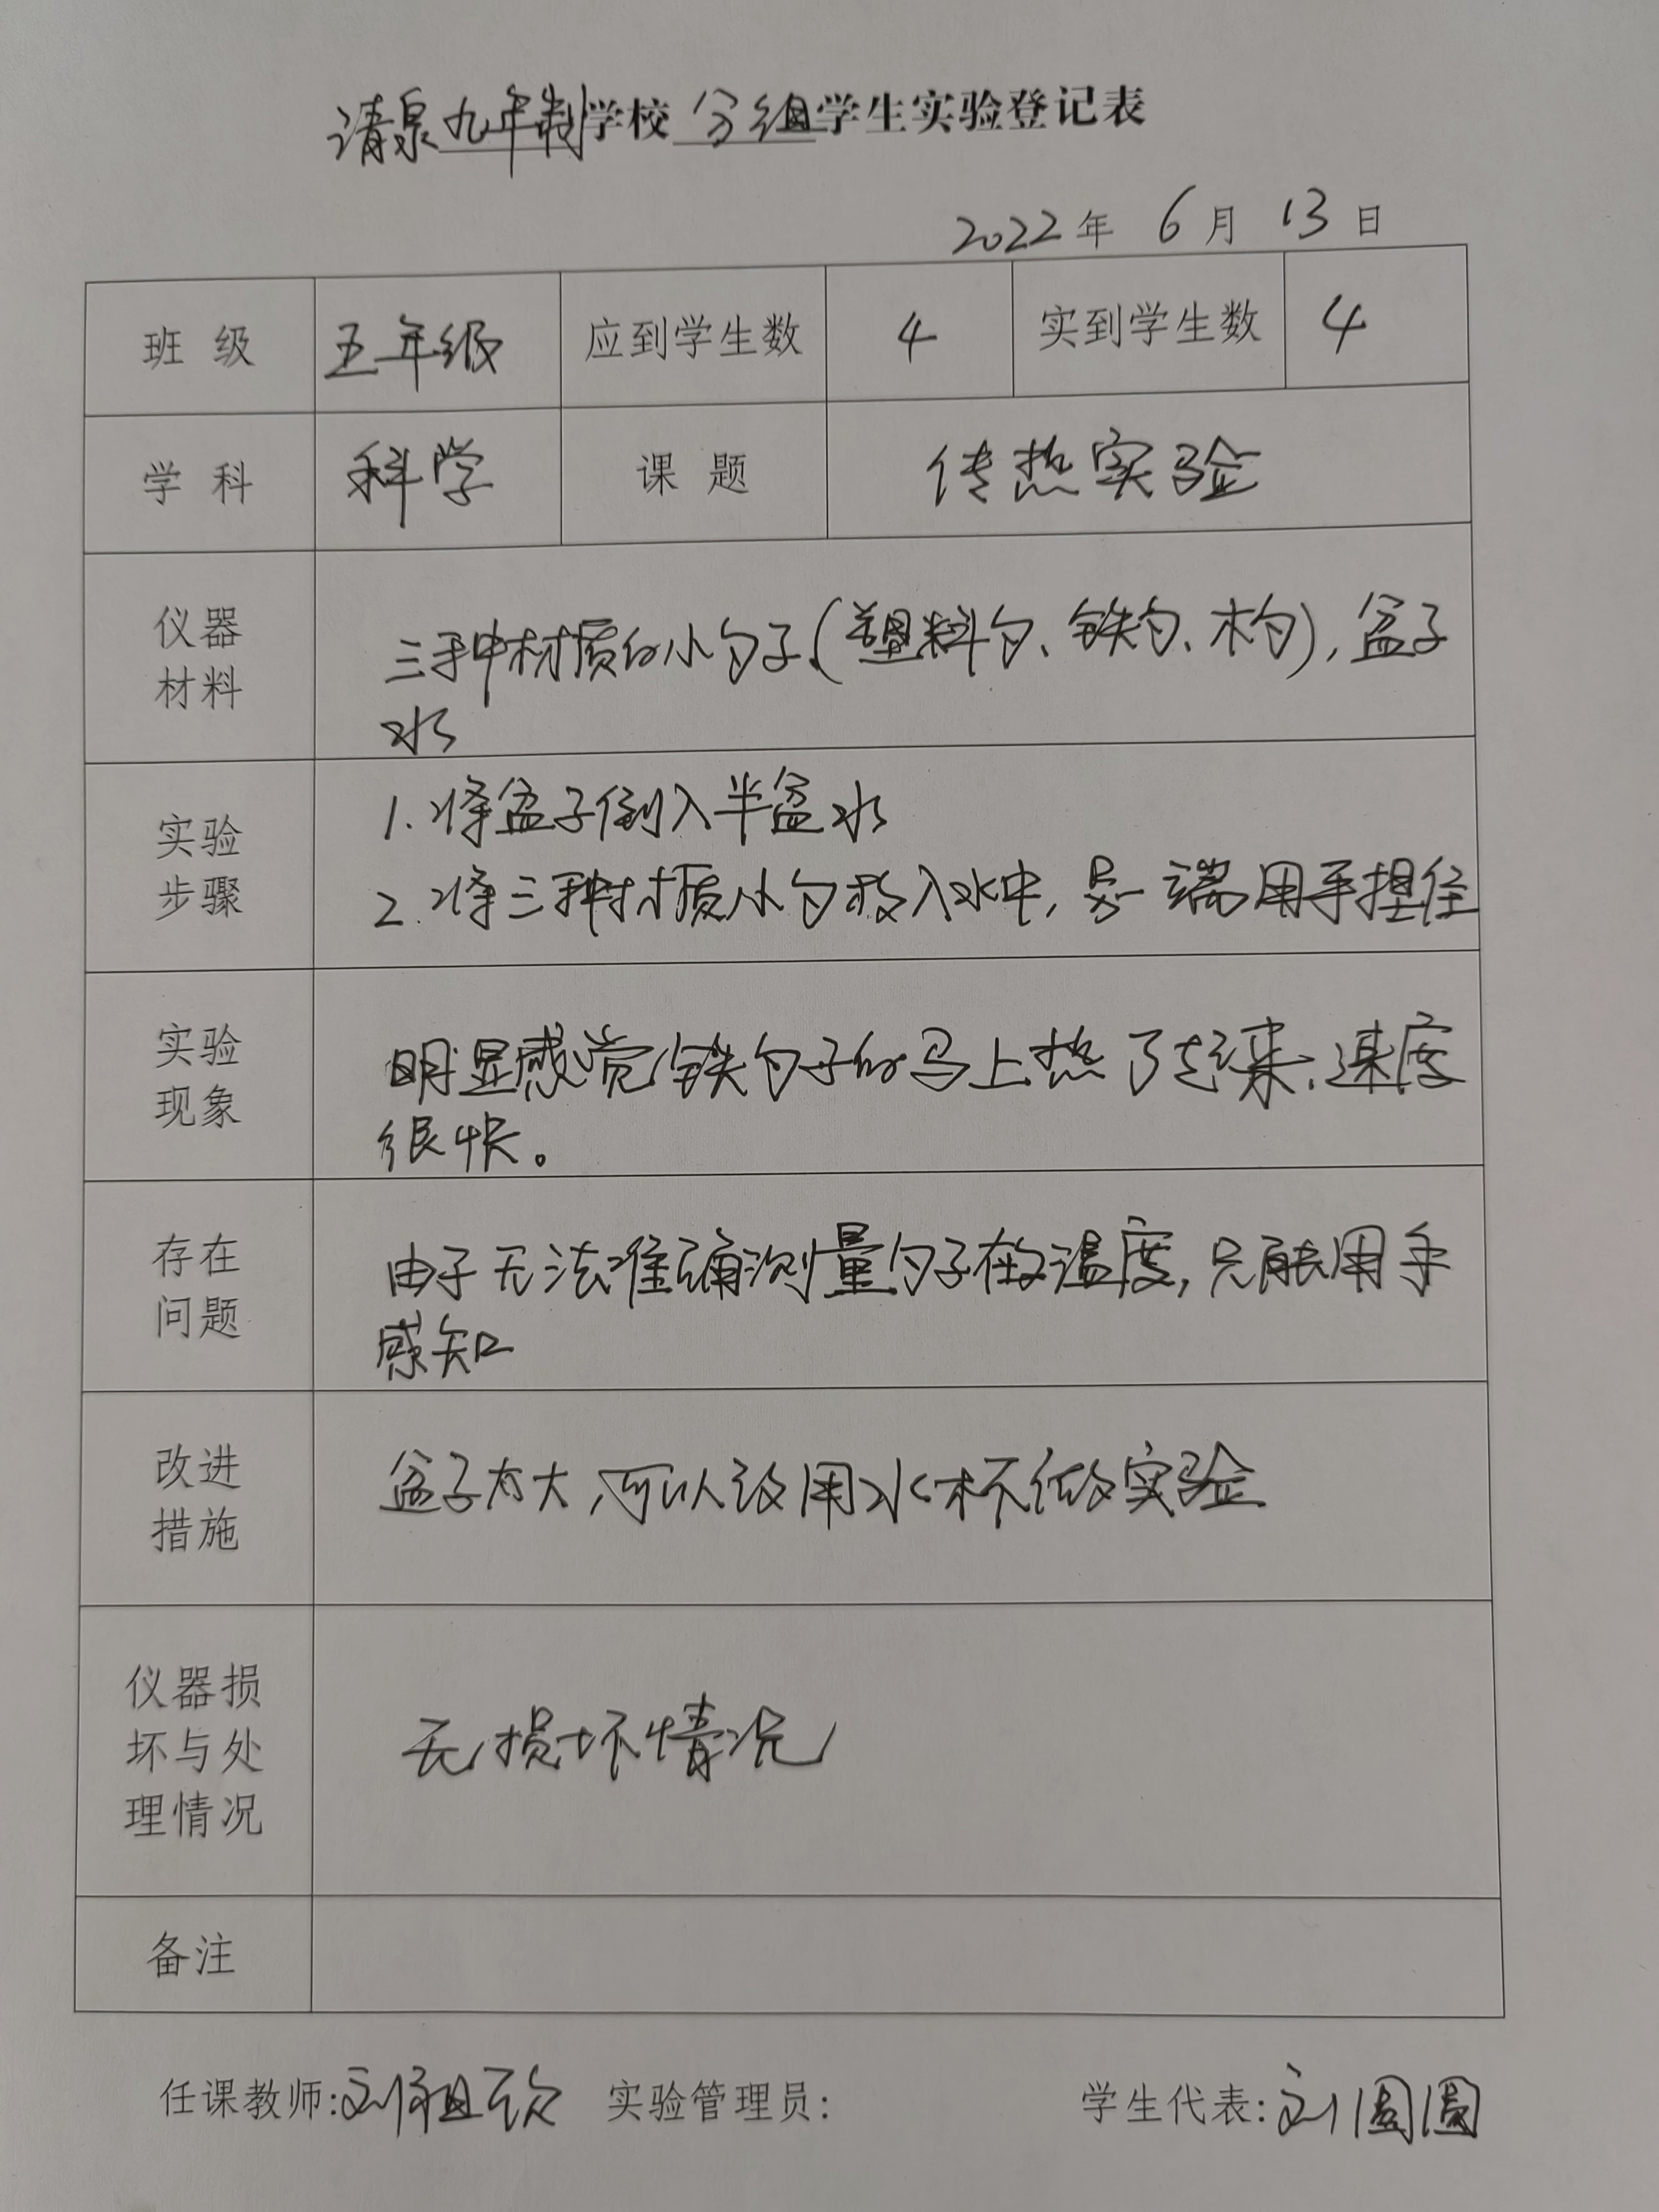 清泉九年制学校分组学生实验登记表
2022年 6月 13日
班 级 五年级 应到学生数 4 实到学生数 4
学 科 科学 课 题 传热实验
仪器
材料
三种材质的小勺子(塑料勺、铁勺、木勺),盆子
水
实验
步骤
1.将盆子倒入半盆水
2.将三种材质小勺放入水中,另一端用手捏住
实验
现象
明显感觉铁勺子的马上热了起来,速度
很快。
存在
问题
由于无法准确测量勺子在的温度,只能用手
感知
改进
措施
盆子太大,可以设用水杯做实验
仪器损
坏与处
理情况
无损坏情况
备注
任课教师: 实验管理员: 学生代表:刘圆圆